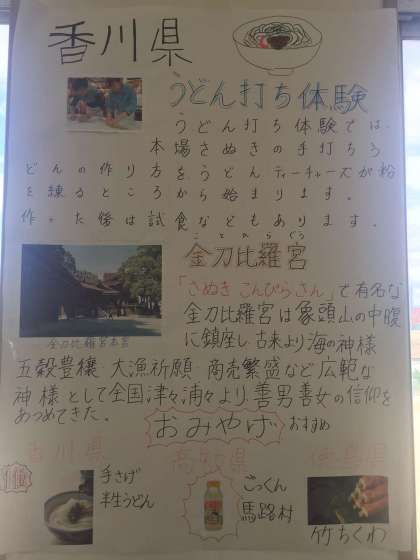 香川県
うどん打ち体験
うどん打ち体験では、
本場さぬきの手打ちう
どんの作り方をうどんティーチャーズが粉
を練るところから始まります。
作った後は試食などもあります。
ことひらぐう
金刀比羅宮
「さぬきこんぴらさん」で有名な
金刀比羅宮は象頭山の中腹
に鎮座し古来より海の神様
金刀比羅宮本宮
五穀豊穣・大漁祈願・商売繁盛など広範な
神様として全国津々浦々より善男善女の信仰を
あつめてきた。
おみやげ おすすめ
香川県
1位
手さげ
半生うどん
高知県
ごっくん
馬路村
徳島県
竹ちくわ